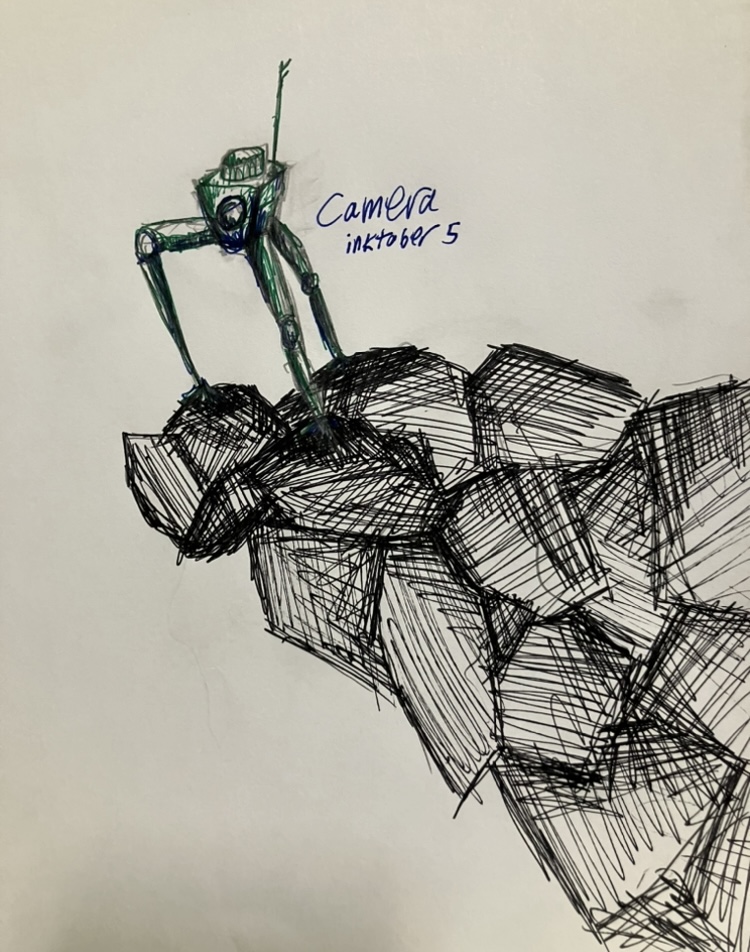 Camera
inktober 5